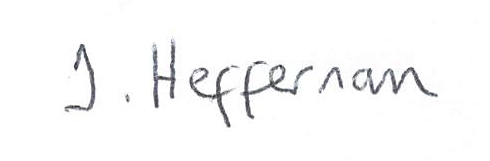 J. Heffernan